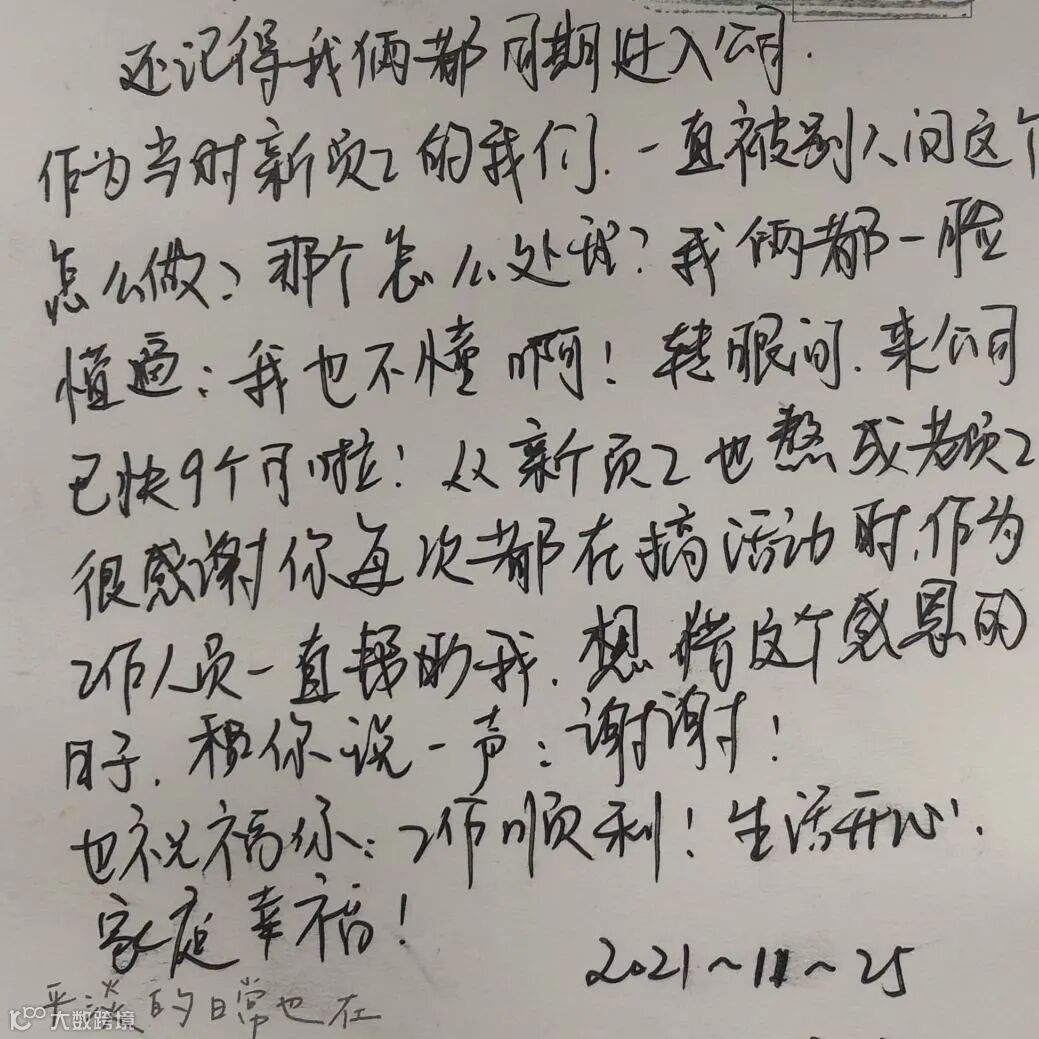 还记得我俩都同期进入公司.
作为当时新员工的我们.一直被别人问这个
怎么做?那个怎么处理?我俩都一脸
懵逼:我也不懂啊!转眼间.来公司
已快9个月啦!从新员工也熬成老员工
很感谢你每次都在搞活动时,作为
工作人员一直帮助我.想借这个感恩的
日子.和你说一声:谢谢!
也祝福你:工作顺利!生活开心.
家庭幸福!
2021~11~25
平淡的日常也在
大数跨境